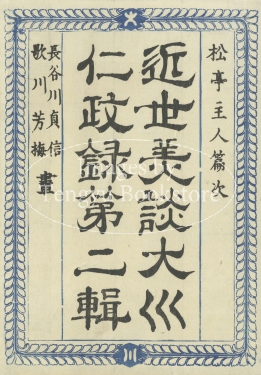 松亭主人篇次
近世美談大巛
仁政録第二輯
長谷川貞信
歌川芳梅
畫
川
Bookstore